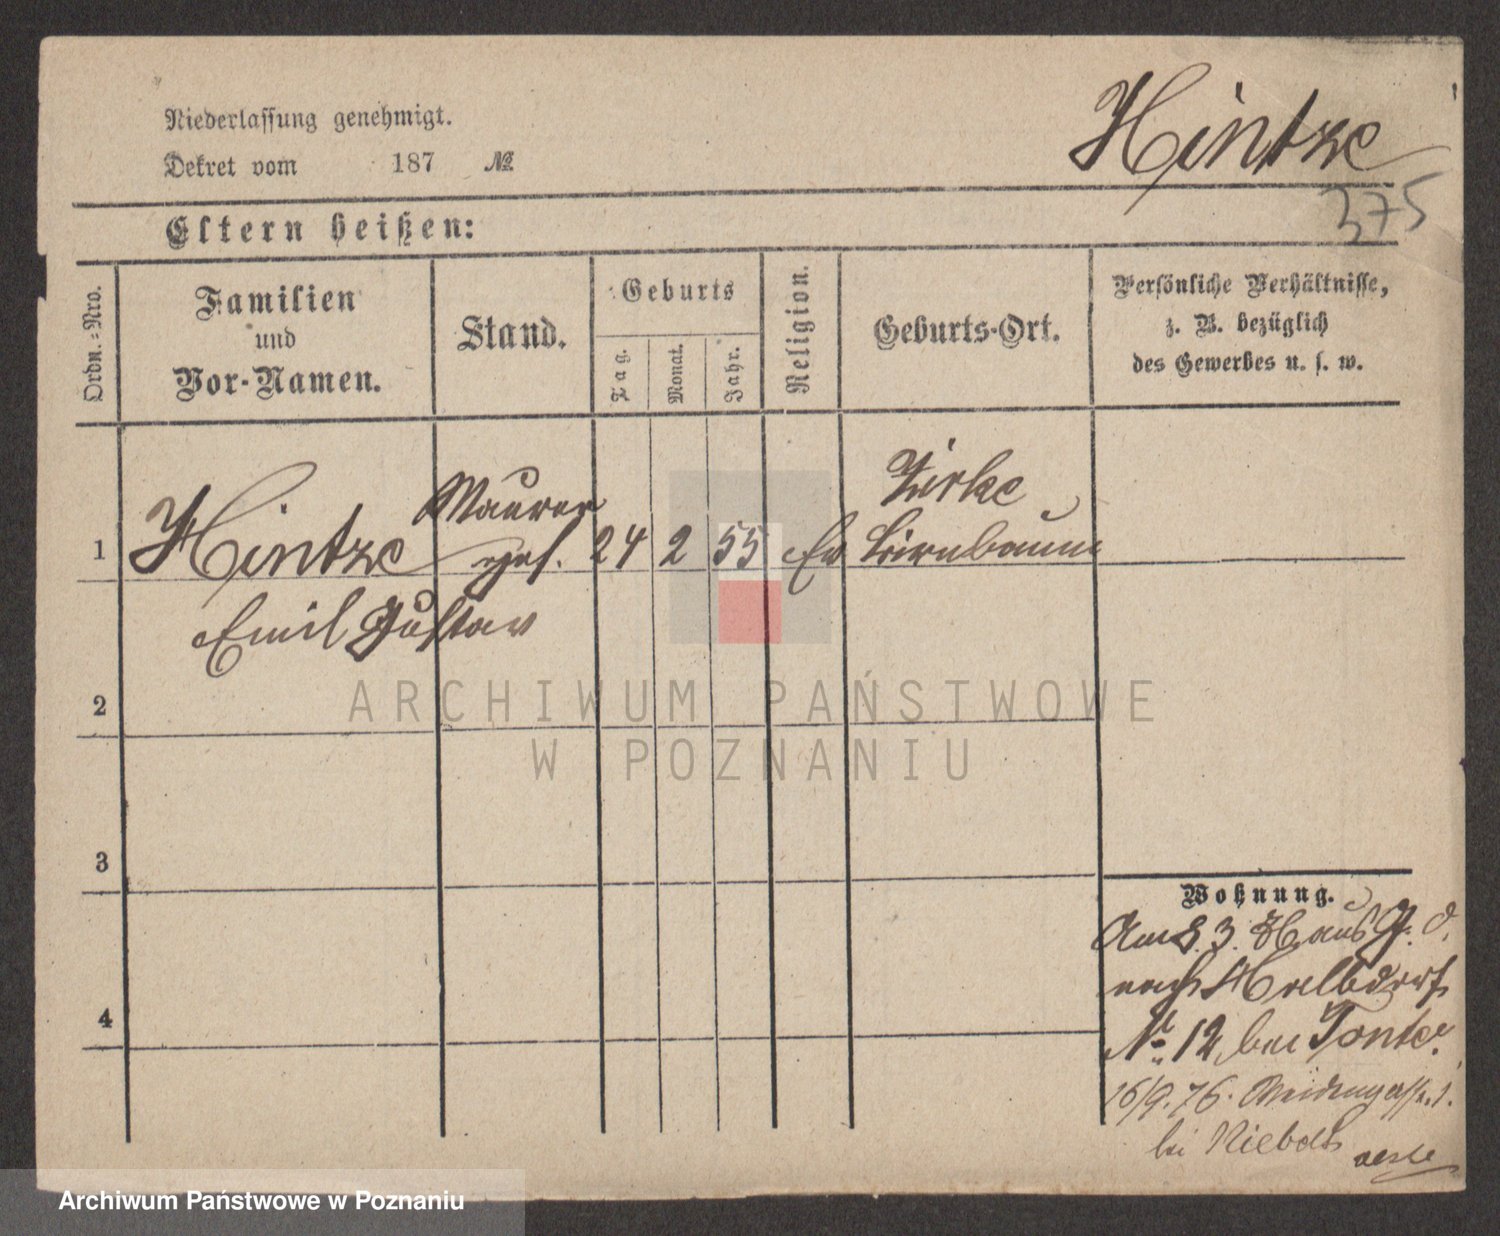 Niederlassung genehmigt.
Dekret vom 187 №
Hintze
375
Eltern heißen:
Ordn.-Nro.
Familien
und
Vor-Namen.
Stand.
Geburts
Tag.
Monat.
Jahr.
Religion.
Geburts-Ort.
Persönliche Verhältnisse,
z. B. bezüglich
des Gewerbes u. s. w.
Zirke
1 Hintze Maurer
ges. 24 2 55 Ev Birnbaum
Emil Gustav
2
ARCHIWUM PAŃSTWOWE
W POZNANIU
3
Wohnung.
Am 8. 3.
nach Halbdorf
4
№ 12 bei Tonke.
16/9. 76.
bei
Archiwum Państwowe w Poznaniu